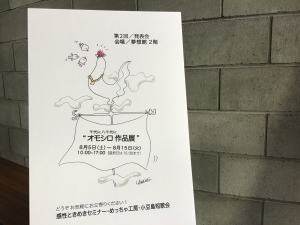 第2回／発表会
会場／夢想館 2階
千光に八千光に
“オモシロ 作品展”
8月5日(土)〜8月15日(火)
10:00~17:00
どうぞ お気軽にお立寄りください！
感性ときめきセミナー・めっちゃ工房・小豆島短歌会